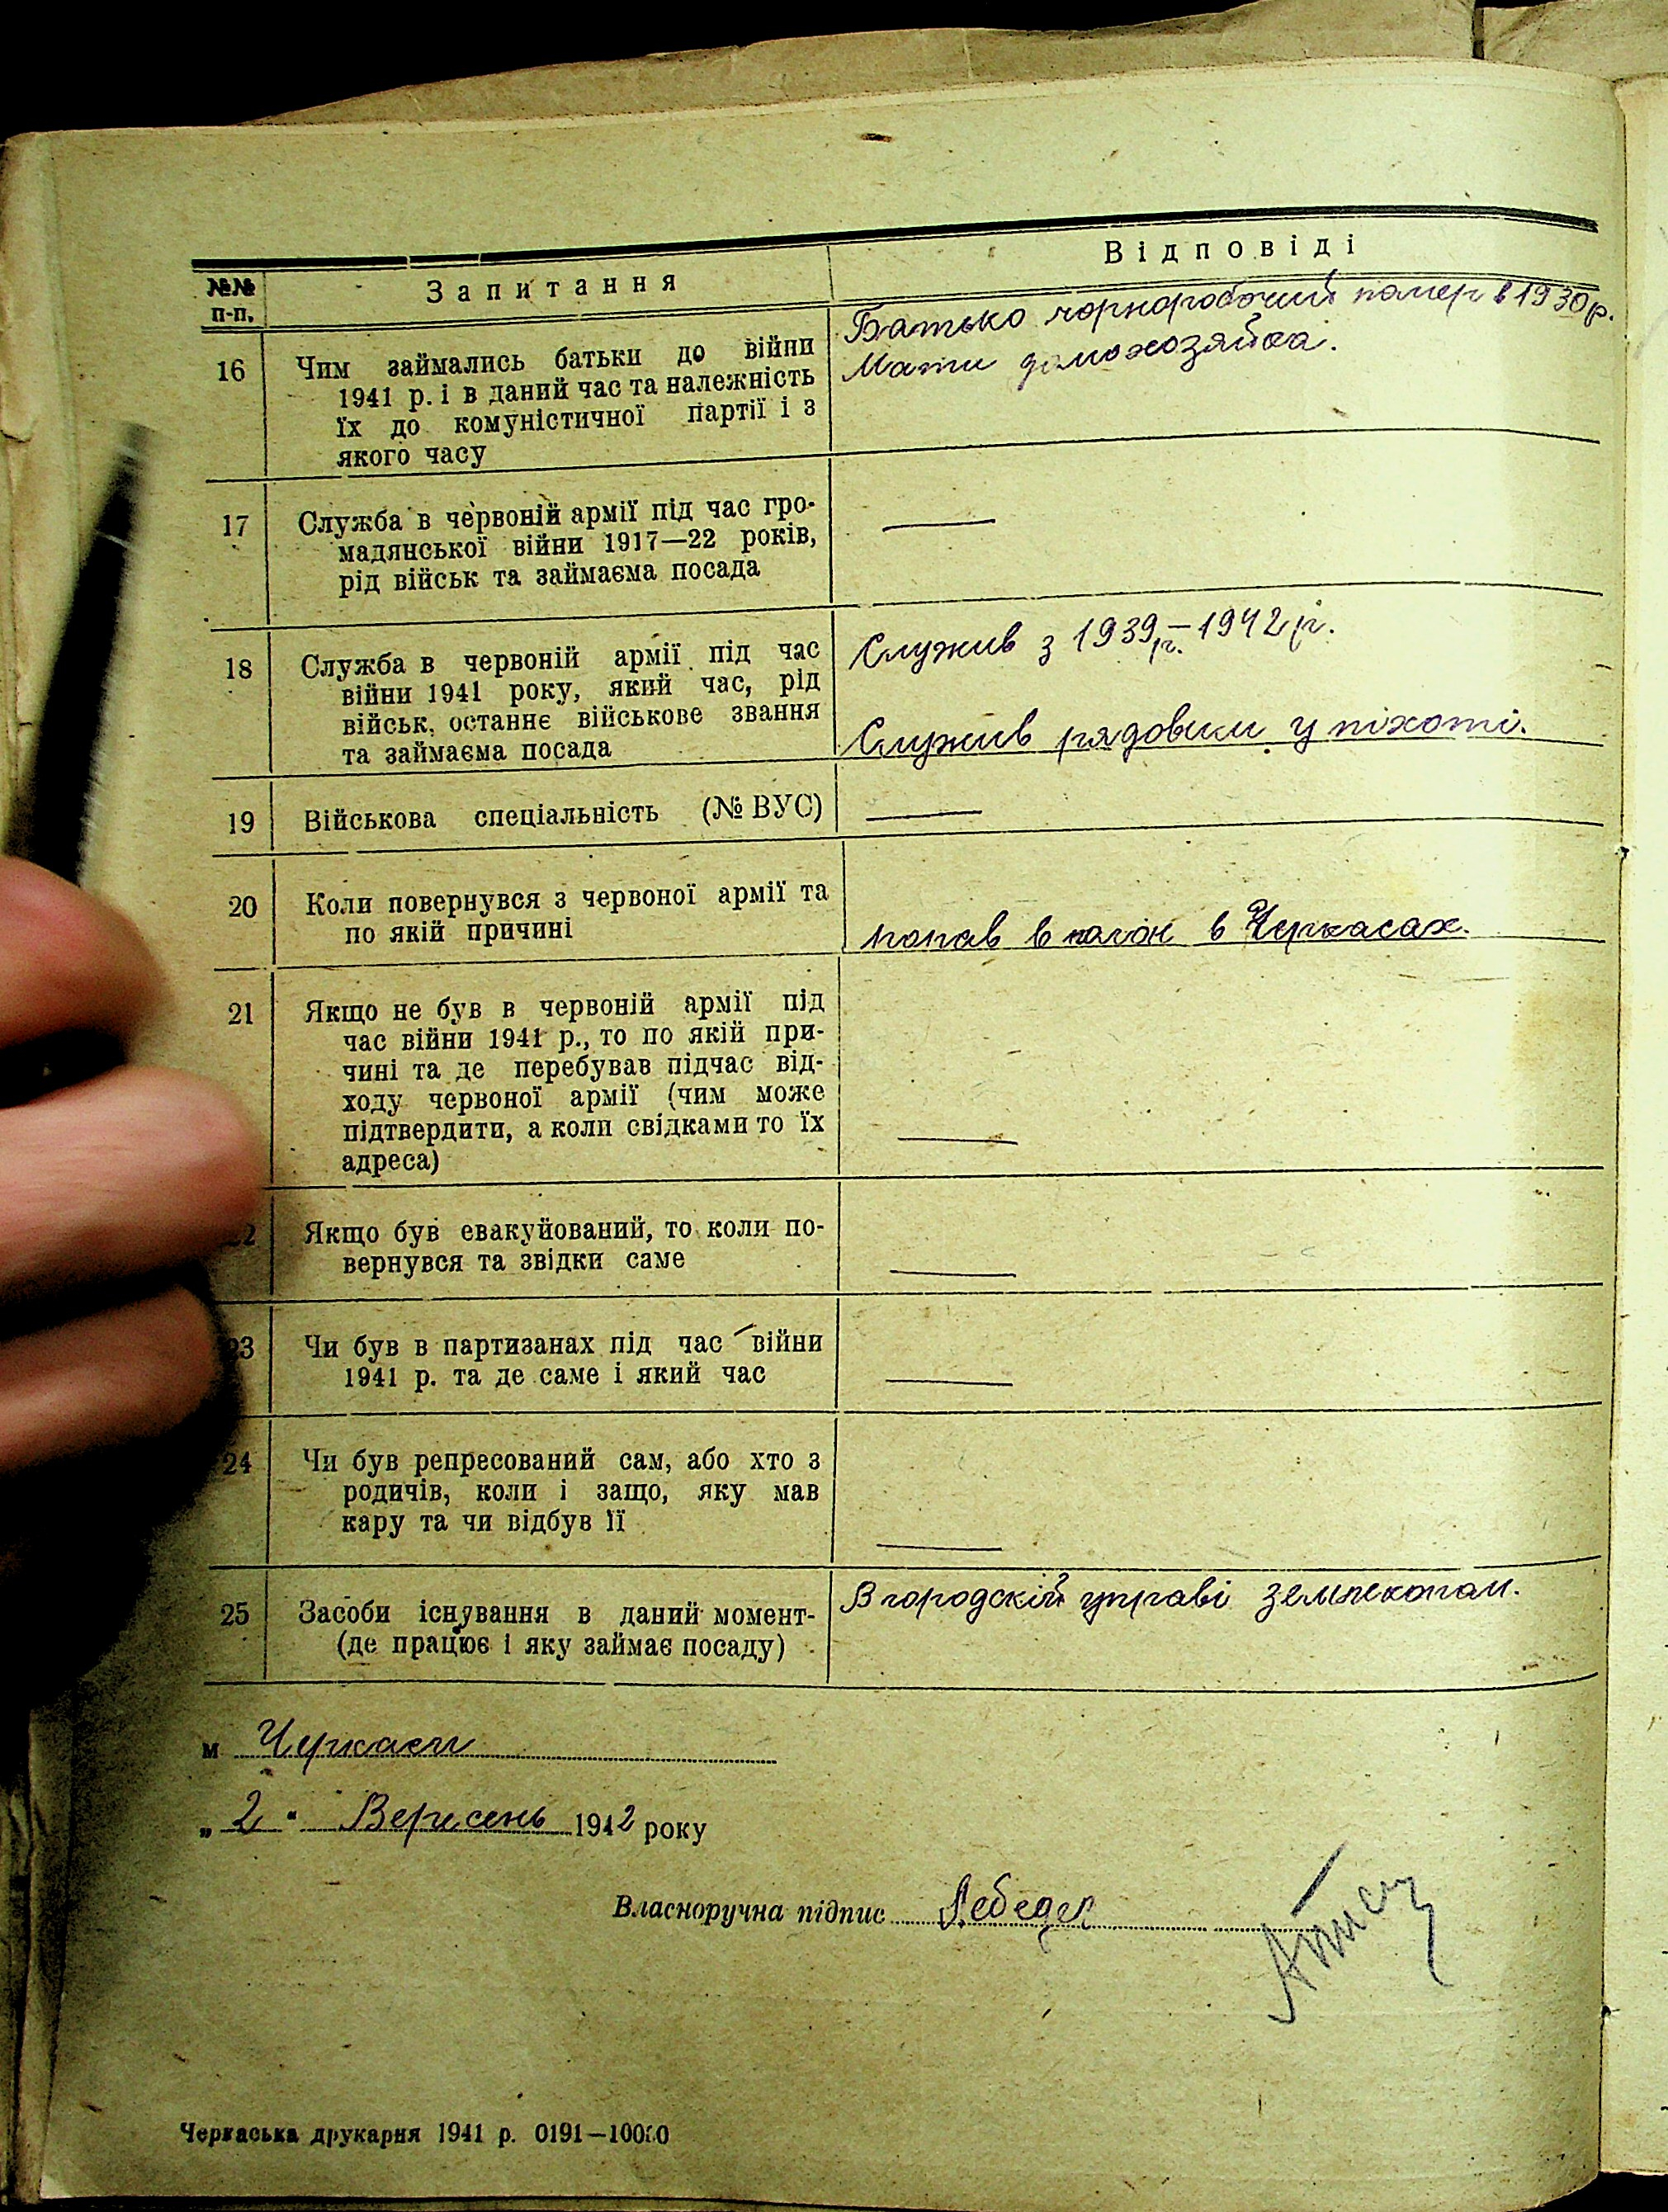 №№ п-п. Запитання Відповіді
16 Чим займались батьки до війни
1941 р. і в даний час та належність
їх до комуністичної партії і з
якого часу
Батько чорноробочий помер в 1930 р.
Мати домохозяйка.
17 Служба в червоній армії під час гро-
мадянської війни 1917—22 років,
рід військ та займаєма посада
—
18 Служба в червоній армії під час
війни 1941 року, який час, рід
військ, останнє військове звання
та займаєма посада
Служив з 1939 р. – 1942 р.
Служив рядовим у піхоті.
19 Військова спеціальність (№ ВУС)
—
20 Коли повернувся з червоної армії та
по якій причині
попав в полон в Черкасах.
21 Якщо не був в червоній армії під
час війни 1941 р., то по якій при-
чині та де перебував підчас від-
ходу червоної армії (чим може
підтвердити, а коли свідками то їх
адреса)
—
22 Якщо був евакуйований, то коли по-
вернувся та звідки саме
—
23 Чи був в партизанах під час війни
1941 р. та де саме і який час
—
24 Чи був репресований сам, або хто з
родичів, коли і защо, яку мав
кару та чи відбув її
—
25 Засоби існування в даний момент-
(де працює і яку займає посаду)
В городскій управі землекопом.
м Черкаси
„ 2 “ Вересень 1942 року
Власноручна підпис Лебедєв
Черкаська друкарня 1941 р. 0191—10000